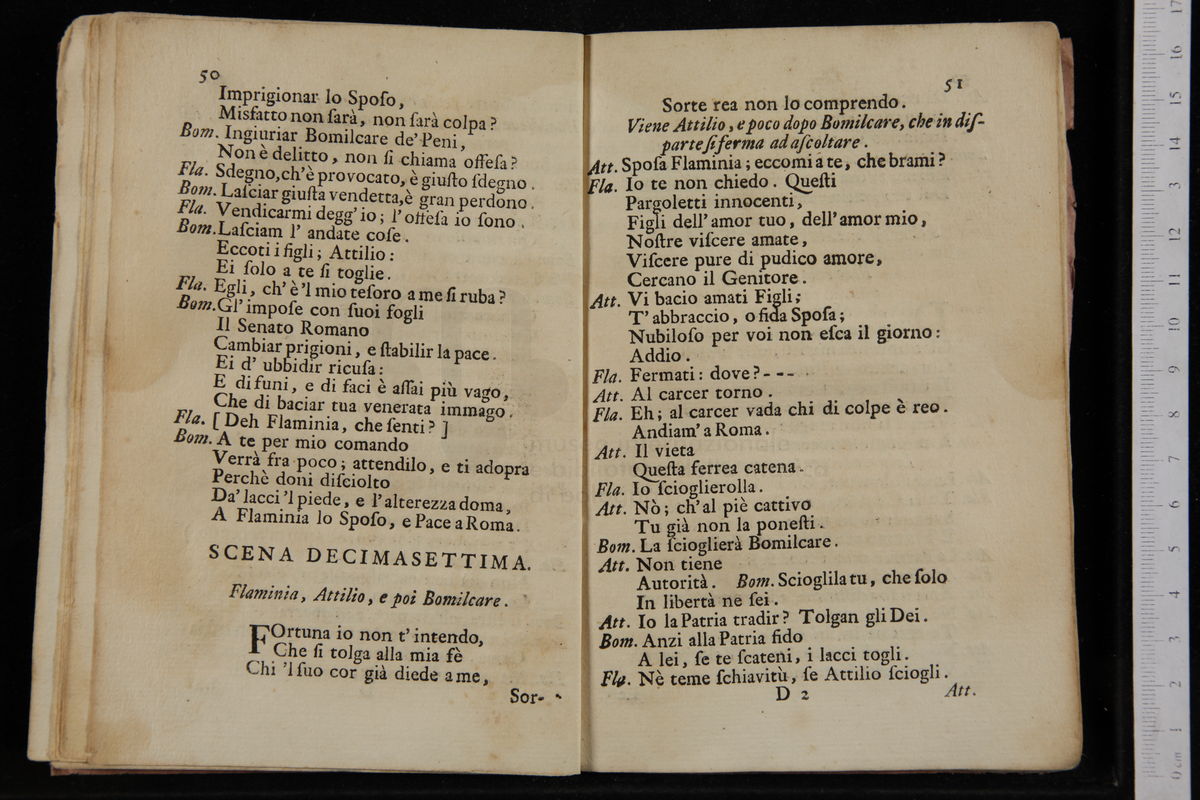 50
Imprigionar lo Spoſo,
Misfatto non ſarà, non ſarà colpa?
Bom. Ingiuriar Bomilcare de' Peni,
Non è delitto, non ſi chiama offeſa?
Fla. Sdegno, ch'è provocato, è giuſto ſdegno.
Bom. Laſciar giuſta vendetta, è gran perdono.
Fla. Vendicarmi degg' io; l'offeſa io ſono.
Bom. Laſciam l' andate coſe.
Eccoti i figli; Attilio:
Ei ſolo a te ſi toglie.
Fla. Egli, ch' è 'l mio teſoro a me ſi ruba?
Bom. Gl' impoſe con ſuoi fogli
Il Senato Romano
Cambiar prigioni, e ſtabilir la pace.
Ei d' ubbidir ricuſa:
E di funi, e di faci è aſſai più vago,
Che di baciar tua venerata immago.
Fla. [ Deh Flaminia, che ſenti? ]
Bom. A te per mio comando
Verrà fra poco; attendilo, e ti adopra
Perchè doni diſciolto
Da' lacci 'l piede, e l'alterezza doma,
A Flaminia lo Spoſo, e Pace a Roma.
SCENA DECIMASETTIMA.
Flaminia, Attilio, e poi Bomilcare.
FOrtuna io non t' intendo,
Che ſi tolga alla mia fè
Chi 'l ſuo cor già diede a me,
Sor-
51
Sorte rea non lo comprendo.
Viene Attilio, e poco dopo Bomilcare, che in diſ-
parte ſi ferma ad aſcoltare.
Att. Spoſa Flaminia; eccomi a te, che brami?
Fla. Io te non chiedo. Queſti
Pargoletti innocenti,
Figli dell' amor tuo, dell' amor mio,
Noſtre viſcere amate,
Viſcere pure di pudico amore,
Cercano il Genitore.
Att. Vi bacio amati Figli;
T' abbraccio, o fida Spoſa;
Nubiloſo per voi non eſca il giorno:
Addio.
Fla. Fermati: dove? - - -
Att. Al carcer torno.
Fla. Eh; al carcer vada chi di colpe è reo.
Andiam' a Roma.
Att. Il vieta
Queſta ferrea catena.
Fla. Io ſcioglierolla.
Att. Nò; ch' al piè cattivo
Tu già non la poneſti.
Bom. La ſcioglierà Bomilcare.
Att. Non tiene
Autorità. Bom. Scioglila tu, che ſolo
In libertà ne ſei.
Att. Io la Patria tradir? Tolgan gli Dei.
Bom. Anzi alla Patria fido
A lei, ſe te ſcateni, i lacci togli.
Fla. Nè teme ſchiavitù, ſe Attilio ſciogli.
D 2
Att.
0 cm 1 2 3 4 5 6 7 8 9 10 11 12 13 14 15 16 17